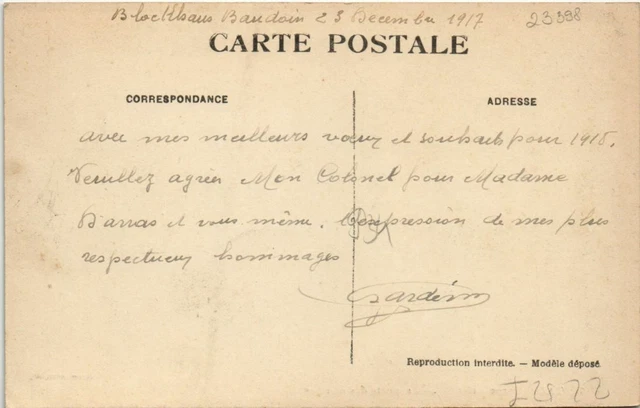 Blockhaus Baudoin 23 Decembre 1917
23398
CARTE POSTALE
CORRESPONDANCE
ADRESSE
avec mes meilleurs voeux et souhaits pour 1918.
Veuillez agréer Mon Colonel pour Madame
Barras et vous même. l'expression de mes plus
respectueux hommages
Reproduction interdite. — Modèle déposé